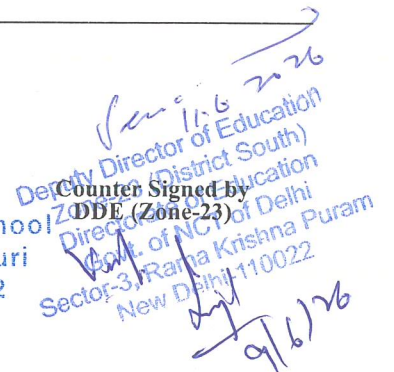 11.6 2026
Deputy Director of Education
Zone-23 (District South)
Directorate of Education
Govt. of NCT of Delhi
Sector-3, Rama Krishna Puram
New Delhi-110022
Counter Signed by
DDE (Zone-23)
hool
uri
2
9/6/26